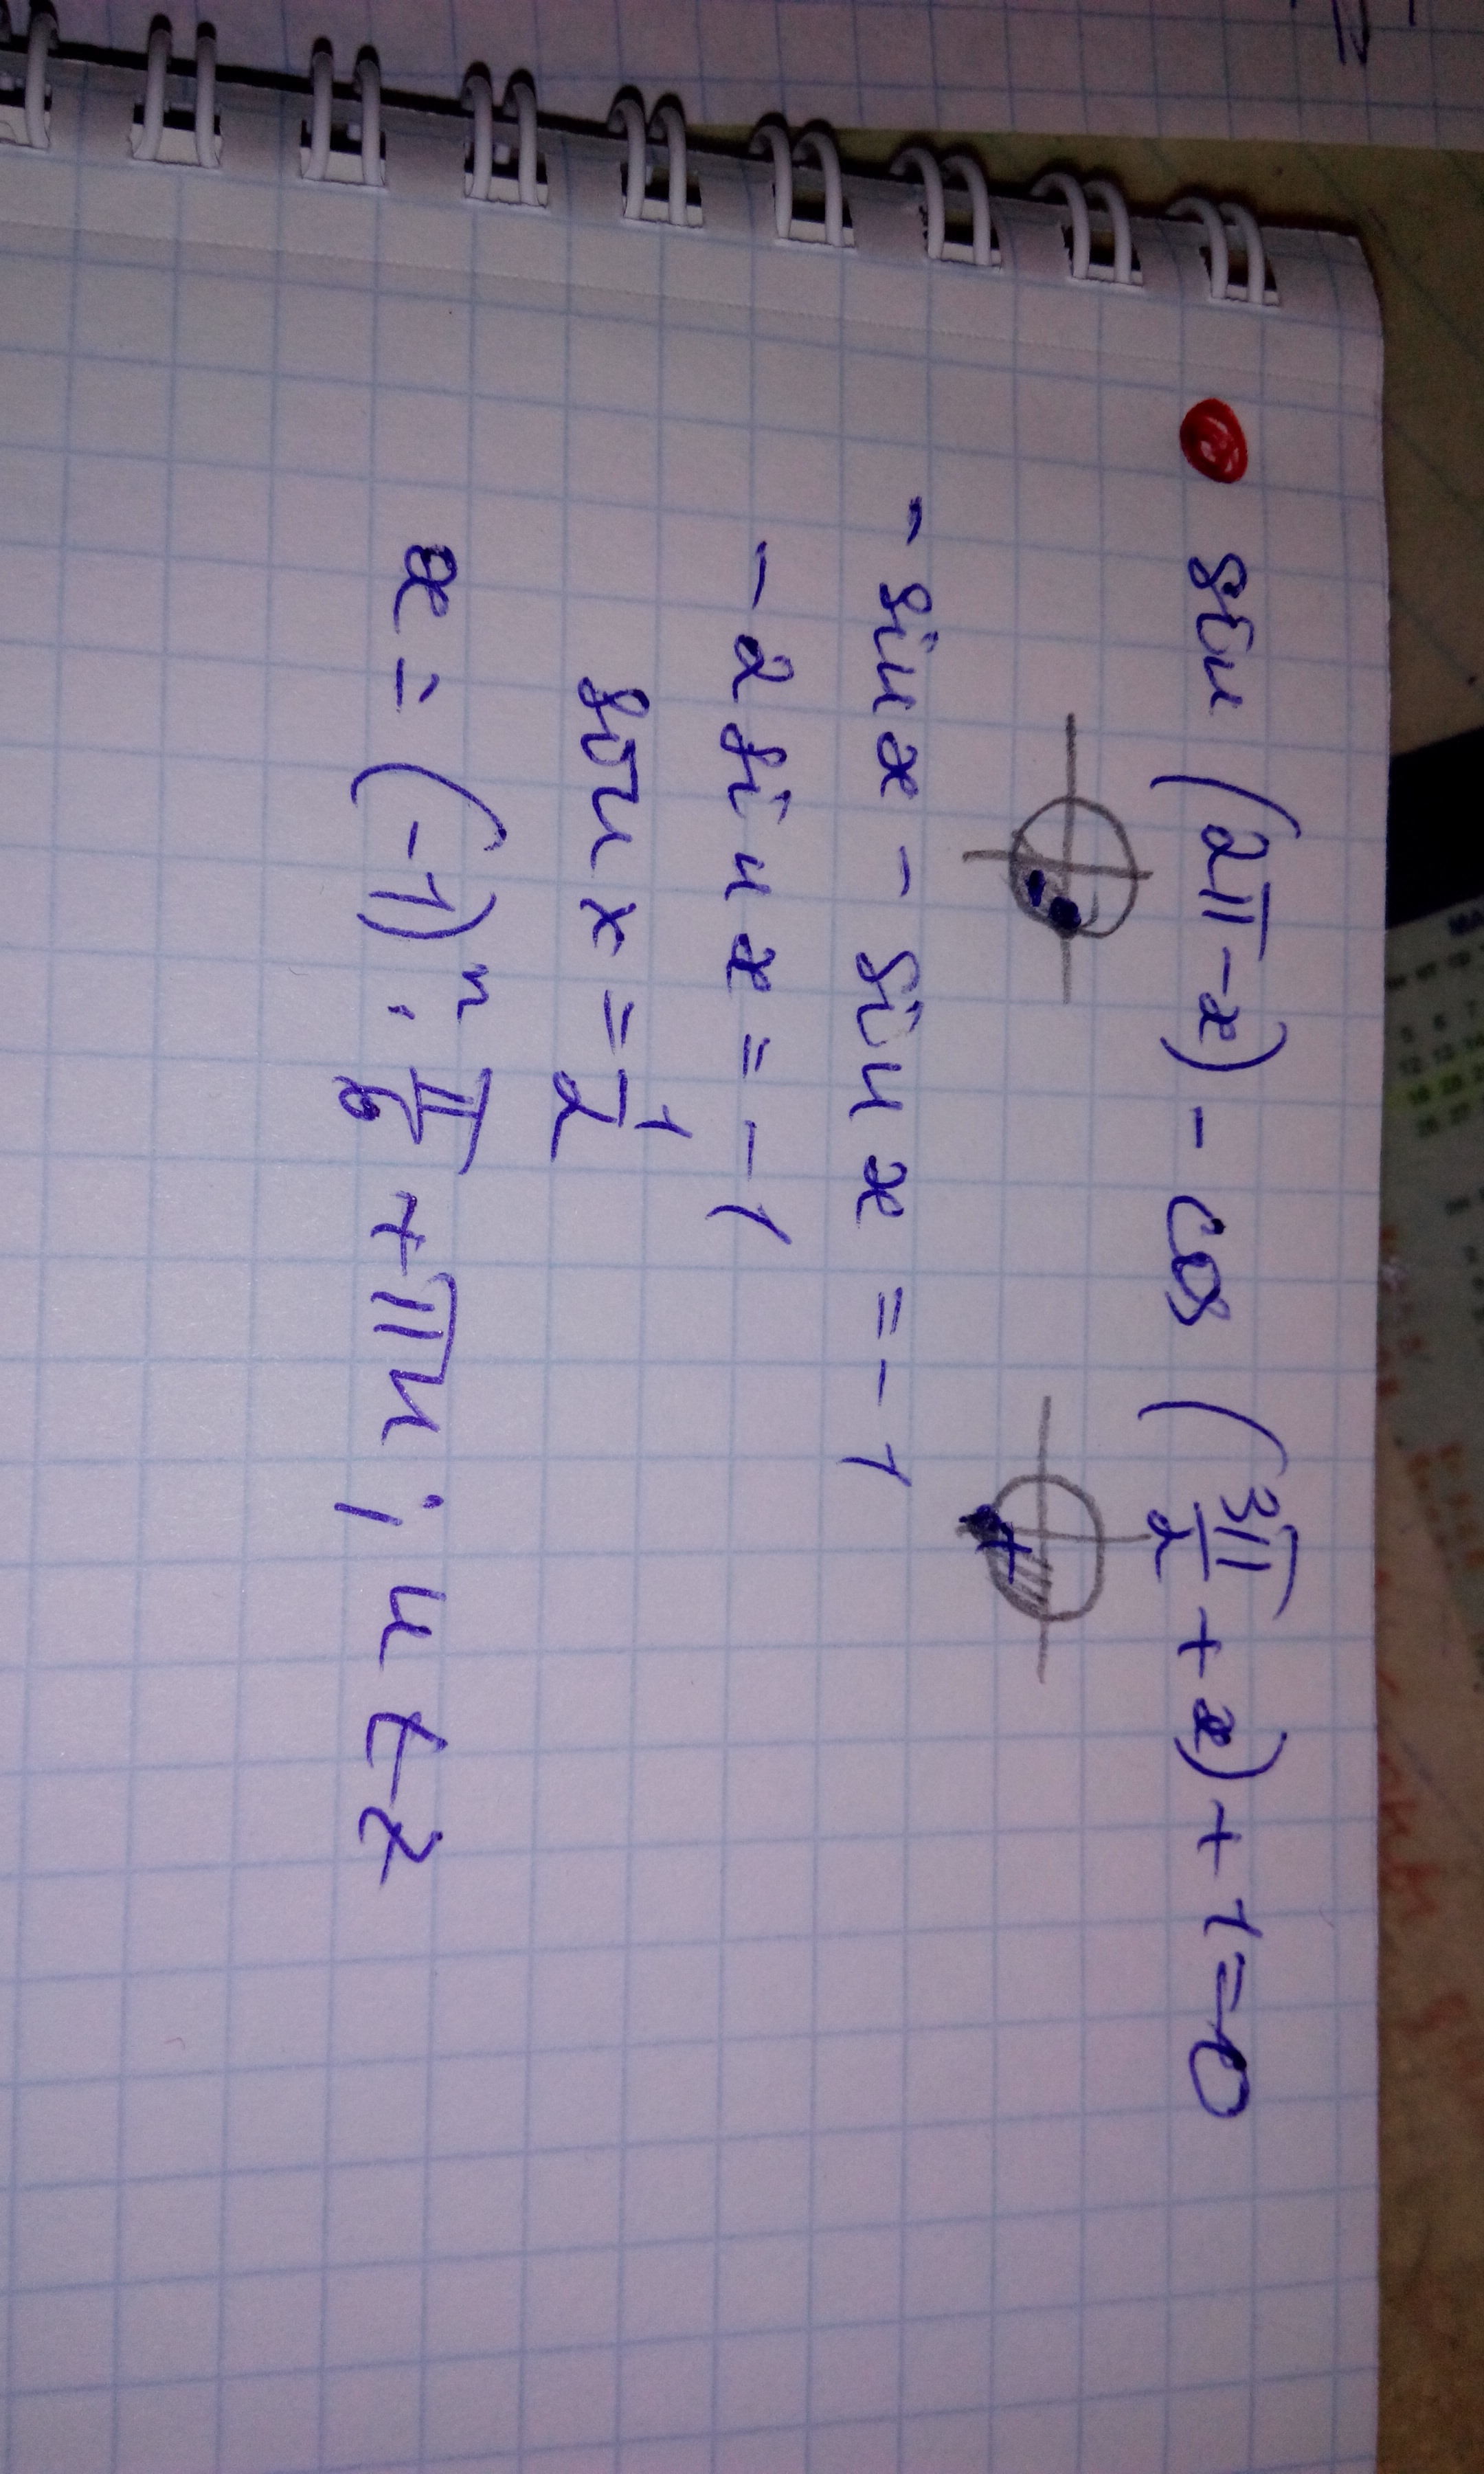 sin (2π - x) - cos (3π/2 + x) + 1 = 0
- sin x - sin x = -1
- 2 sin x = -1
sin x = 1/2
x = (-1)ⁿ · π/6 + πn ; n ∈ Z